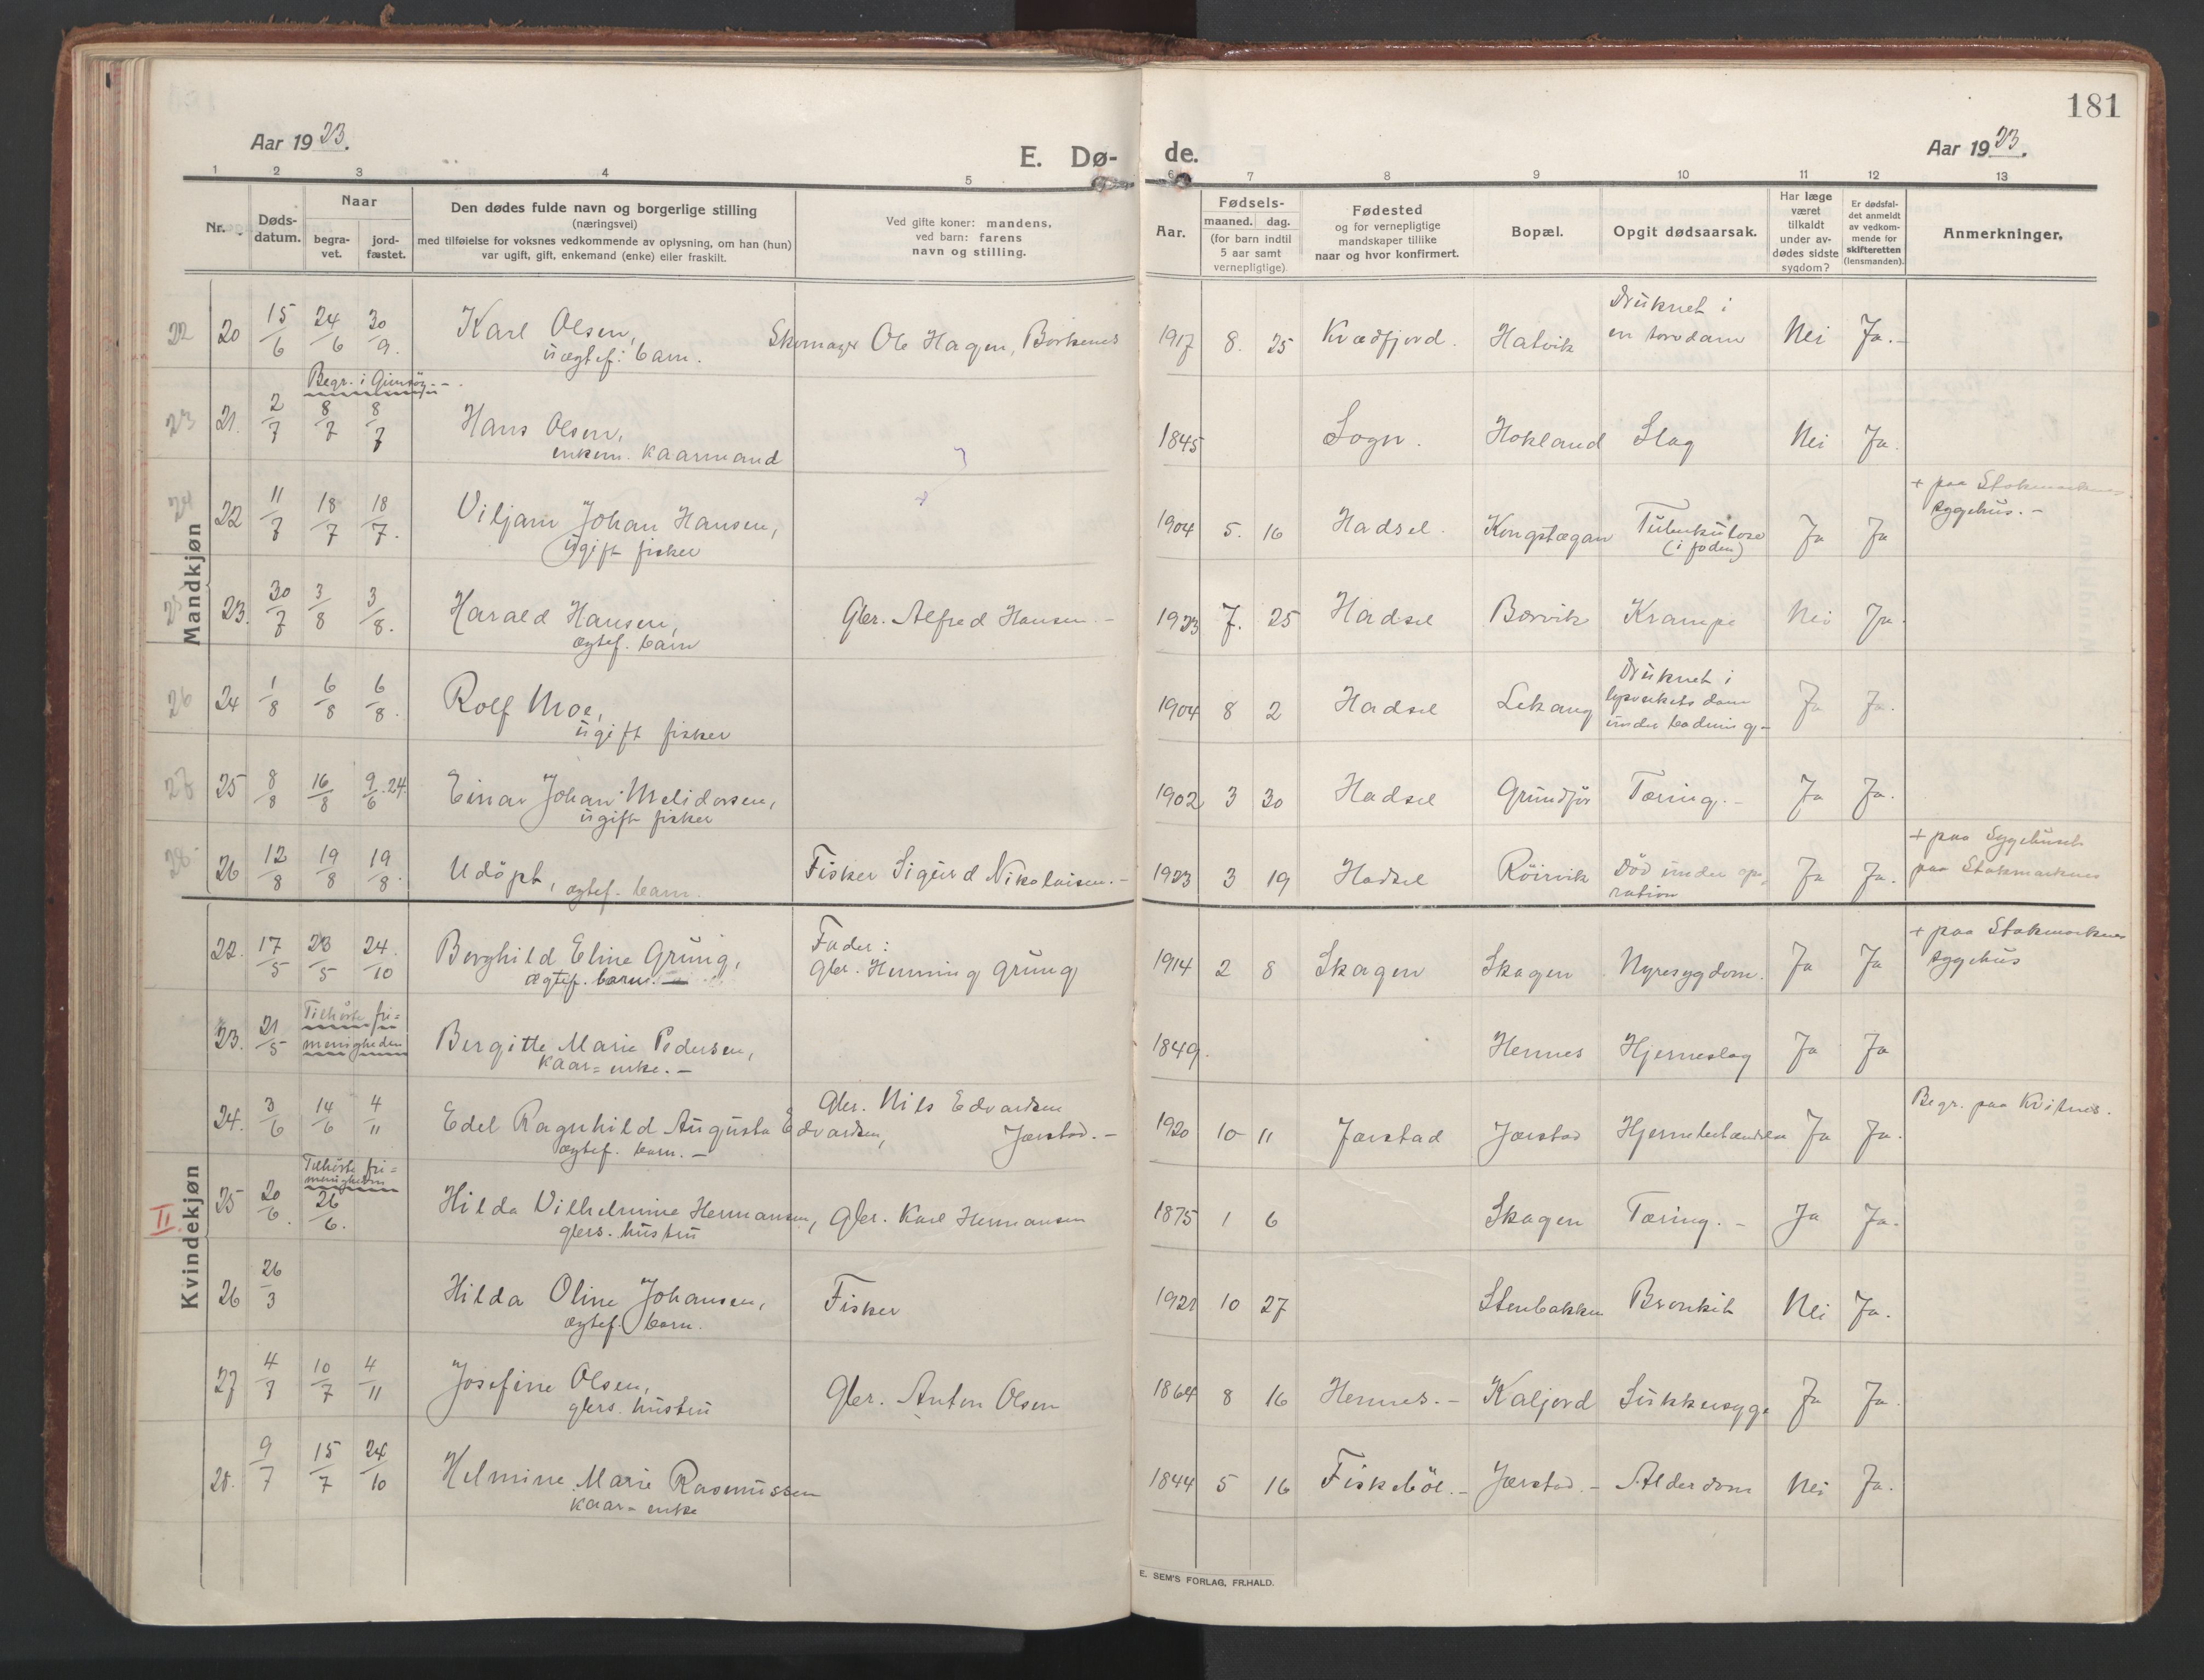 181
Aar 1923.
E. Dø-
de.
Aar 1923.
1 2 3 4 5 6 7 8 9 10 11 12 13
Nr.
Døds-
datum.
Naar
begra-
vet.
jord-
fæstet.
Den dødes fulde navn og borgerlige stilling
(næringsvei)
med tilføielse for voksnes vedkommende av oplysning, om han (hun)
var ugift, gift, enkemand (enke) eller fraskilt.
Ved gifte koner: mandens,
ved barn: farens
navn og stilling.
Aar.
Fødsels-
maaned. dag.
(for barn indtil
5 aar samt
vernepligtige)
Fødested
og for vernepligtige
mandskaper tillike
naar og hvor konfirmert.
Bopæl.
Opgit dødsaarsak.
Har læge
været
tilkaldt
under av-
dødes sidste
sygdom?
Er dødsfal-
det anmeldt
av vedkom-
mende for
skifteretten
(lensmanden).
Anmerkninger.
Mandkjøn
22 20 15/6 24/6 30/9. Karl Olsen, Skomager Ole Hagen, Borkenes 1917 8. 25 Kvædfjord. Hatvik Druknet i
uægtef. barn. en torvdam Nei Ja.-
Begr. i Gimsöy
23 21. 2/7 8/7 8/7 Hans Olsen, 1845 Sogn. Hokland Slag Nei Ja.
enkem. kaarmand
24 22 11/7 18/7 18/7. Viljam Johan Hansen, 1904 5. 16 Hadsel. Kongstægan Tuberkulose Ja Ja + paa Stokmarknes
ugift fisker (i foden) sygehus.-
25 23. 30/7 3/8 3/8. Harald Hansen, Gbr. Alfred Hansen.- 1923 7. 25 Hadsel Borvik Krampe Nei Ja.
ægtef. barn
26 24 1/8 6/8 6/8. Rolf Moe, 1904 8 2 Hadsel Lekang Druknet i
ugift fisker dam Ja Ja.
under badning-
27 25 8/8 16/8 9/6.24. Einar Johan Melidorsen, 1902 3 30 Hadsel Grundfør Tæring.- Ja Ja.
ugift fisker
28 26 12/8 19/8 19/8. Udöpt, ægtef. barn. Fisker Sigurd Nikolaisen.- 1923 3 19 Hadsel Röirvik Död under ope-
ration Ja Ja. + paa Sygehuset
paa Stokmarknes
II Kvindekjøn
22. 17/5 23/5 24/10 Borghild Eline Grung, Fader:
ægtef. barn.- Gbr. Henning Grung 1914 2 8 Skagen Skagen Nyresygdom. Ja Ja + paa Stokmarknes
sygehus
Tilhörte fri=
menigheden
23. 21/5 Bergitte Marie Pedersen, 1849. Hennes Hjerneslag Ja Ja
kaar=enke.-
24. 3/6 14/6 4/11 Edel Ragnhild Augusta Edvardsen, Gbr. Nils Edvardsen
ægtef. barn.- Jørstad.- 1920 10 11 Jørstad Jørstad Ja Ja. Begr. paa Kvitnes.
Tilhörte fri=
menigheden
25 20/6. 26/6. Hilda Vilhelmine Hermansen, Gbr. Karl Hermansen 1875 1 6 Skagen Tæring.- Ja Ja.
gbrs. hustru
26 26/3 Hilda Oline Johansen, Fisker 10 27 Stenbakken Bronkit Nei Ja.
ægtef. barn.
27 4/7 10/7 4/11 Josefine Olsen, Gbr. Anton Olsen 1864 8 16 Hennes.- Kaljord Sukkersyge Ja Ja.
gbrs. hustru
28. 9/7 15/7 24/10 Helmine Marie Rasmussen 1844 5 16 Fiskeböl.- Jørstad.- Alderdom Nei Ja.
kaar=enke
E. SEM'S FORLAG, FR.HALD.